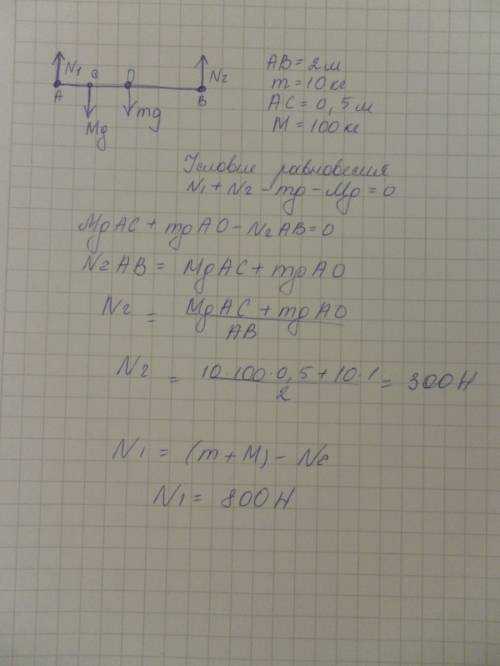 N1 C O N2
A B
Mg mg
AB = 2м
m = 10 кг
AC = 0,5 м
M = 100 кг
Условие равновесия
N1 + N2 - mg - Mg = 0
MgAC + mgAO - N2AB = 0
N2AB = MgAC + mgAO
N2 = MgAC + mgAO / AB
N2 = 10·100·0,5 + 10·1 / 2 = 300Н
N1 = (m + M) - N2
N1 = 800Н